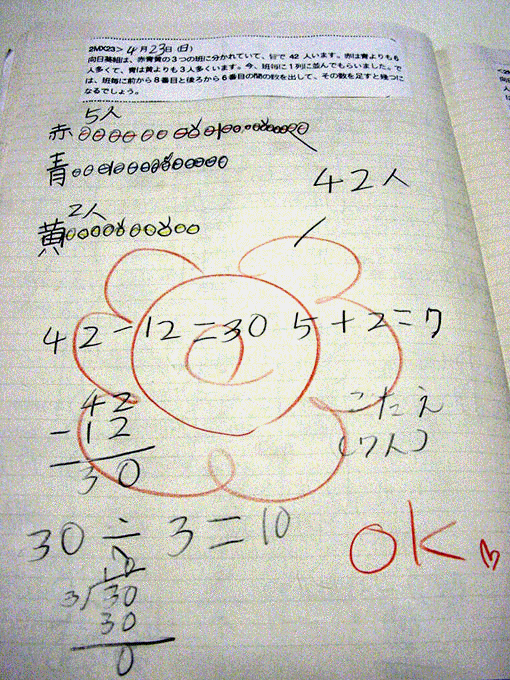 2MX23> 4月23日(日)
向日葵組は、赤青黄の3つの班に分かれていて、皆で42人います。赤は青よりも6
人多くて、青は黄よりも3人多くいます。今、班毎に1列に並んでもらいました。で
は、班毎に前から8番目と後ろから6番目の間の数を出して、その数を足すと幾つに
なるでしょう。
5人
赤
青
42人
2人
黄
42-12=30 5+2=7
42
-12
30
こたえ
(7人)
30÷3=10
OK
10
3)30
30
0